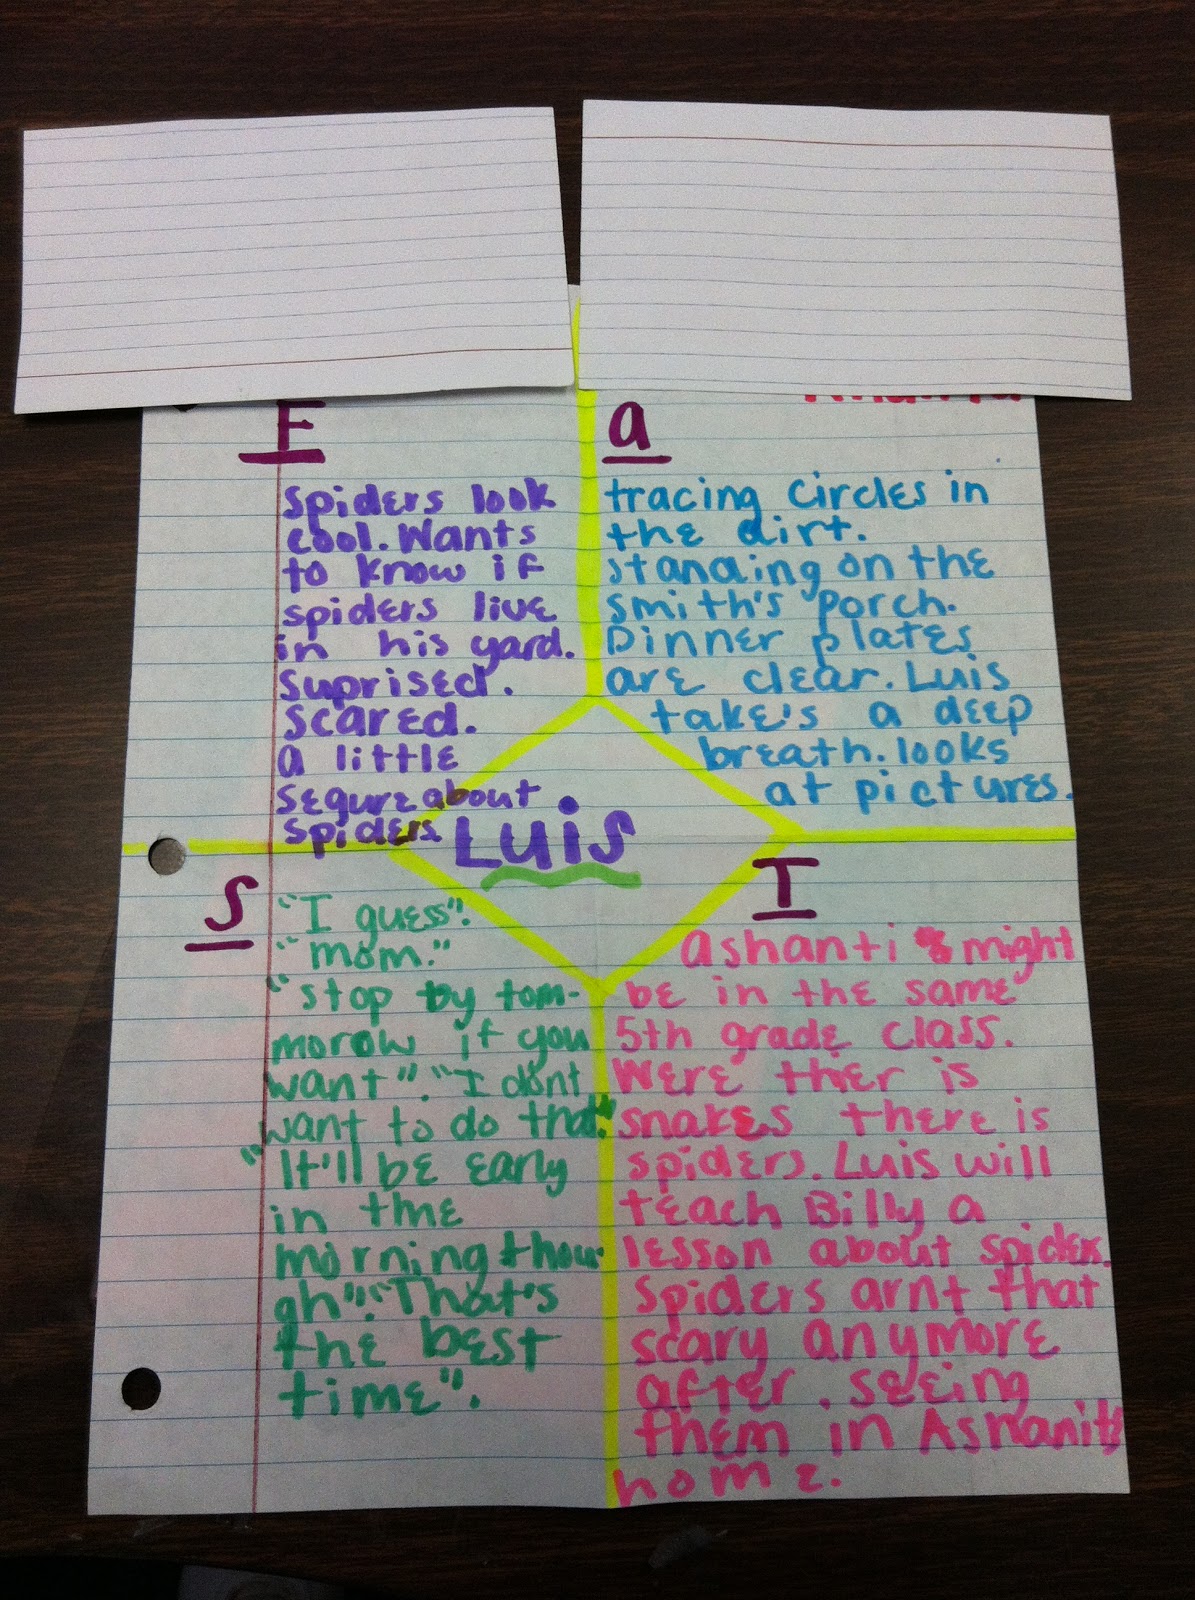 F
Spiders look
cool. Wants
to know if
spiders live
in his yard.
Suprised.
Scared.
a little
sequre about
spiders.
a
tracing circles in
the dirt.
standing on the
smith's porch.
Dinner plates
are clear. Luis
take's a deep
breath. looks
at pictures.
Luis
S
"I guess".
"mom."
"stop by tom-
morow if you
want". "I dont
want to do that."
"It'll be early
in the
morning thou-
gh". "That's
the best
time".
I
Ashanti might
be in the same
5th grade class.
Were ther is
snakes there is
spiders. Luis will
teach Billy a
lesson about spiders.
Spiders arnt that
scary anymore
after. seeing
them in Ashanits
home.